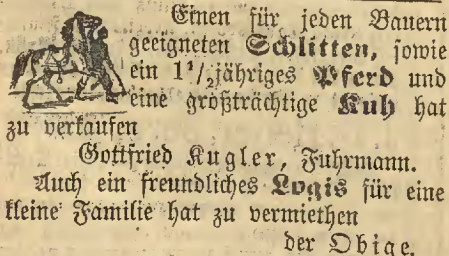 Einen für jeden Bauern
geeigneten Schlitten, sowie
ein 1½jähriges Pferd und
eine großträchtige Kuh hat
zu verkaufen
Gottfried Kugler, Fuhrmann.
Auch ein freundliches Logis für eine
kleine Familie hat zu vermiethen
der Obige.